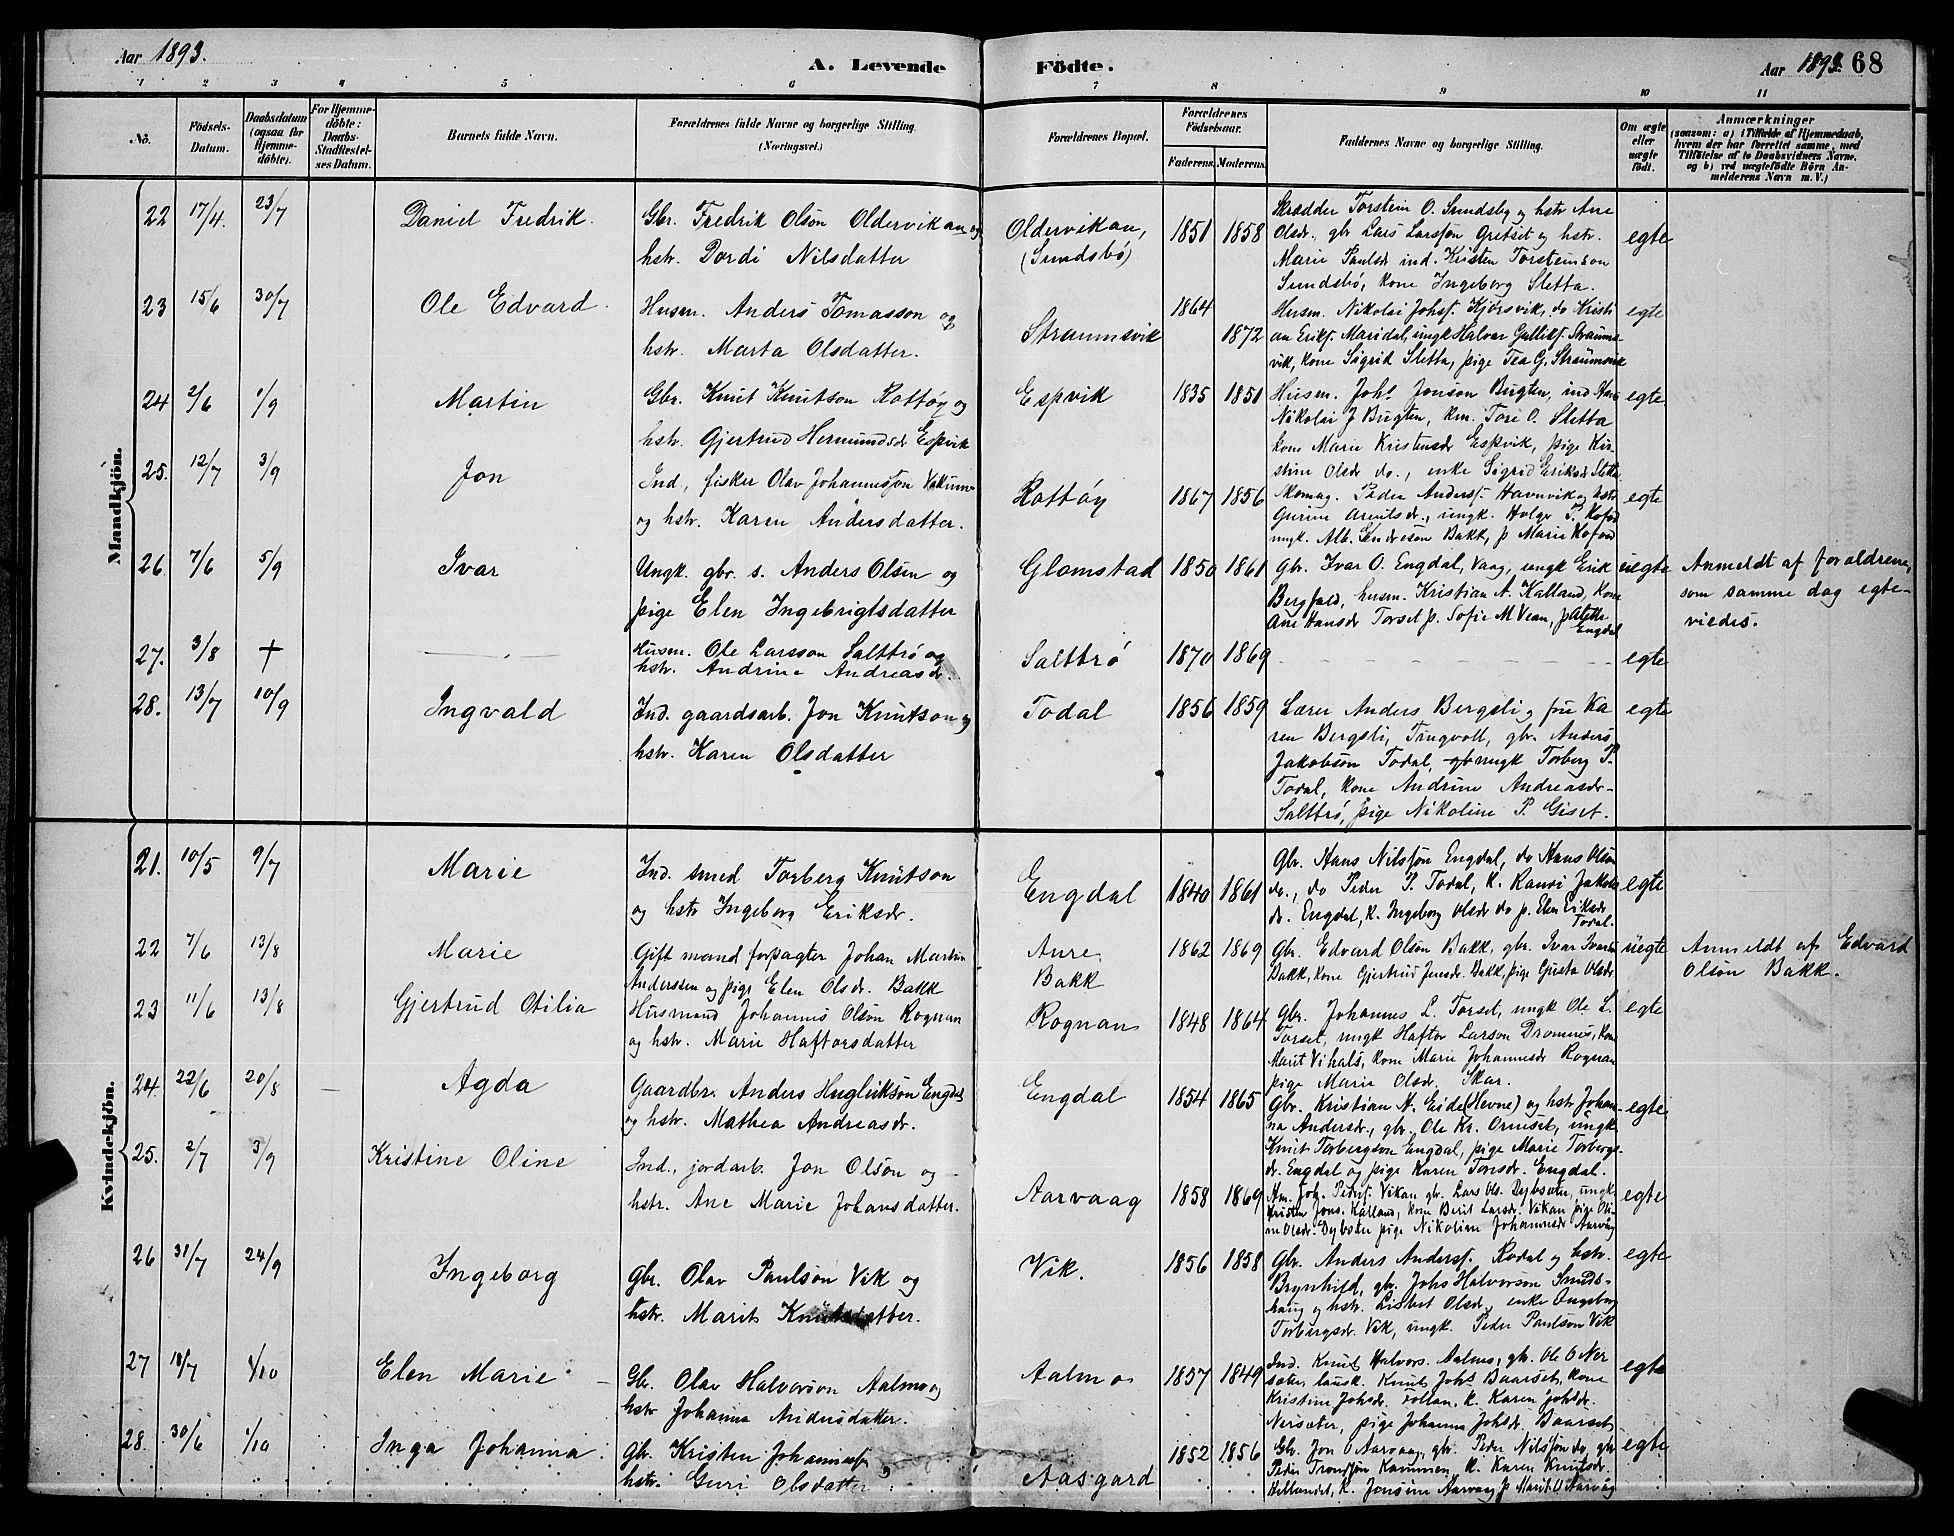 Aar 1893.
A. Levende Födte.
Aar 1893. 68
1 2 3 4 5 6 7 8 9 10 11
No. Födsels-Datum. Daabsdatum (ogsaa for Hjemmedöbte). For Hjemmedöbte: Daabs-Stadfæstelses Datum. Barnets fulde Navn. Forældrenes fulde Navne og borgerlige Stilling. (Næringsvei.) Forældrenes Bopæl. Forældrenes Födselsaar. Faderens. Moderens. Faddernes Navne og borgerlige Stilling. Om ægte eller uægte födt. Anmærkninger (saasom: a) i Tilfælde af Hjemmedaab, hvem der har forrettet samme, med Tilföielse af to Daabsvidners Navne, og b) ved uægtefödte Börn Anmelderens Navn m. V.)
Mandkjön.
22 17/4. 23/7 Daniel Fredrik. Gbr. Fredrik Olson Oldervikan og
hstr. Dordi Nilsdatter
Oldervikan, (Sundsbö) 1851 1858
Skrædder Torstein O. Sundsby og hstr Ane
Olsdr. gbr Lars Larssön Gretset og hstr.
Marie Paulsdr ind. Kristen Torsteinson
Sundsbö, kone Ingeborg Sletta.
egte
23 15/6 30/7 Ole Edvard. Husm. Anders Tomasson og
hstr. Marta Olsdatter.
Straumsvik 1864 1872
Husm. Nikolai Johsf. Kjörsvik, do Kristi
an Eriks. Maridal, ungk Halvor Gulliks. Straums-
vik, kone Sigrid Sletta, pige Tea G. Straumsvik
egte
24 2/6 1/9 Martin Gbr. Knut Knutson Rottöy og
hstr. Gjertrud Hermundsdr Espvik
Espvik 1835 1851
Husm. Johs Jonson Bugten, ind Hans
Nikolai J Bugten, km. Tore O. Sletta
kone Marie Kristensdr Espvik, pige Kir-
stine Olsdr do., enke Sigrid Eriksdr Sletta
egte
25. 12/7 3/9 Jon Ind, fisker Olav Johannessön
og hstr. Karen Andersdatter.
Rottöy 1867 1856
Skomag. Peder Anders. Havnvik og hstr
Gurine Arntsdr., ungk. Holge P. Kofod
ungk. Alb. Bakk, p Marie Kofod
egte
26. 7/6 5/9 Ivar Ungk. gbr. s. Anders Olsen og
pige Elen Ingebrigtsdatter
Glomstad 1850 1861
Gbr. Ivar O. Engdal, Vaag, ungk Erik
Bergfald, husm. Kristian A. Kalland, kone
Ane Hansdr Torset p. Sofie M Vean, p Alette
Engdal
uegte Anmeldt af foraldrene,
som samme dag egte-
viedes.
27. 3/8 + Husm. Ole Larsson Saltbrö og
hstr. Andrine Andreasdr.
Saltbrö 1870 1869 egte
28. 13/7 10/9 Ingvald Ind. gaardsarb. Jon Knutson og
hstr. Karen Olsdatter
Todal 1856 1859
Lærer Anders Bergsli og fru Ka
ren Bergsli, Tingvoll, gbr. Anders
Jakobson Todal, ungk Torberg P.
Todal, kone Andrine Andreasdr-
Saltbrö, pige Nikoline P. Giset.
egte
Kvindekjön.
21. 10/5 9/7 Marie Ind. smed Torberg Knutson
og hstr Ingeborg Eriksdr.
Engdal 1840 1861
Gbr. Hans Nilssön Engdal, do Hans Olson
do., do Peder P. Todal, K. Rauri Jakobs
dr. Engdal, k. Ingeborg Olsdr do p. Elen Eriksdr
Todal.
egte
22 7/6 13/8 Marie Gift mand forpagter Johan Martin
Anderssen og pige Elen Olsdr. Bakk
Aure. Bakk 1862 1869
Gbr. Edvard Olson Bakk, gbr. Ivar Ivarsn
Bakk, kone Gjertrud Jensdr. Bakk, pige Gusta Olsdr
uegte Anmeldt af Edvard
Olsön Bakk.
23 11/6 13/8 Gjertrud Otilia Husmand Johannes Olson Rognan
og hstr. Marie Haftorsdatter
Rognan 1848 1864
Gbr. Johannes L. Torset, ungk Ole L.
Torset, ungk Haftor Larson Dromnes, kone
Marit Vihals, kone Marie Johannesdr Rognan
pige Marie Olsdr. Skar.
egte
24. 22/6 20/8 Agda Gaardbr. Anders Hugleikson Engdal
og hstr. Mathea Andreasdr.
Engdal 1854 1865
Gbr. Kristian N. Eide (Hevne) og hstr Johan-
na Andersdr, gbr. Ole Kr. Ormset, ungk
Knut Torbergson Engdal, pige Marie Torbergs-
dr. Engdal og pige Karen Toresdr. Engdal.
egte
25. 2/7 3/9 Kristine Oline Ind., jordarb. Jon Olson og
hstr. Ane Marie Johansdatter.
Aarvaag 1858 1869
Hm. Joh. Peders. Vikan gbr. Lars Ols. Dybsæter, ungk
Kristen Jons. Kalland, kone Berit Larsdr. Vikan pige Oli-
ne Olsdr. Dybsæter pige Nikoline Johannesdr Aarvåg
egte
26 31/7 24/9 Ingeborg Gbr. Olav Paulsön Vik og
hstr. Marit Knutsdatter.
Vik. 1856 1858
Gbr. Anders Anders. Rodal og hstr.
Brynhild, gbr. Johs Halvorson Sunds-
haug og hstr. Lisbet Olsdr, enke Ingeborg
Torbergsdr. Vik, ungk. Peder Paulson Vik
egte
27 18/7 1/10 Elen Marie Gb. Olav Halvorson Aalmo og
hstr Johanna Andersdatter.
Aalmo 1857 1849
Ind. Knut Halvors. Aalmo, gb. Ole O Ner
sæter, lausk. Knut Johs Baarset, kone
Kristine Johsdr. Follan, K. Karen Johsdr.
Nersæter, pige Johanna Johsdr. Baarset,
egte
28. 30/6 1/10 Inga Johanna Gb. Kristen Johanness
hstr. Guri Olsdatter
Aasgard 1852 1856
Gb. Jon O Aarvaag, gb. Peder Nilssön do, gb
Peder Trondson Kammen, K. Karen Knutsdr.
Hellandet, K. Jonsine Aarvaag p Marit O Aarvåg
egte